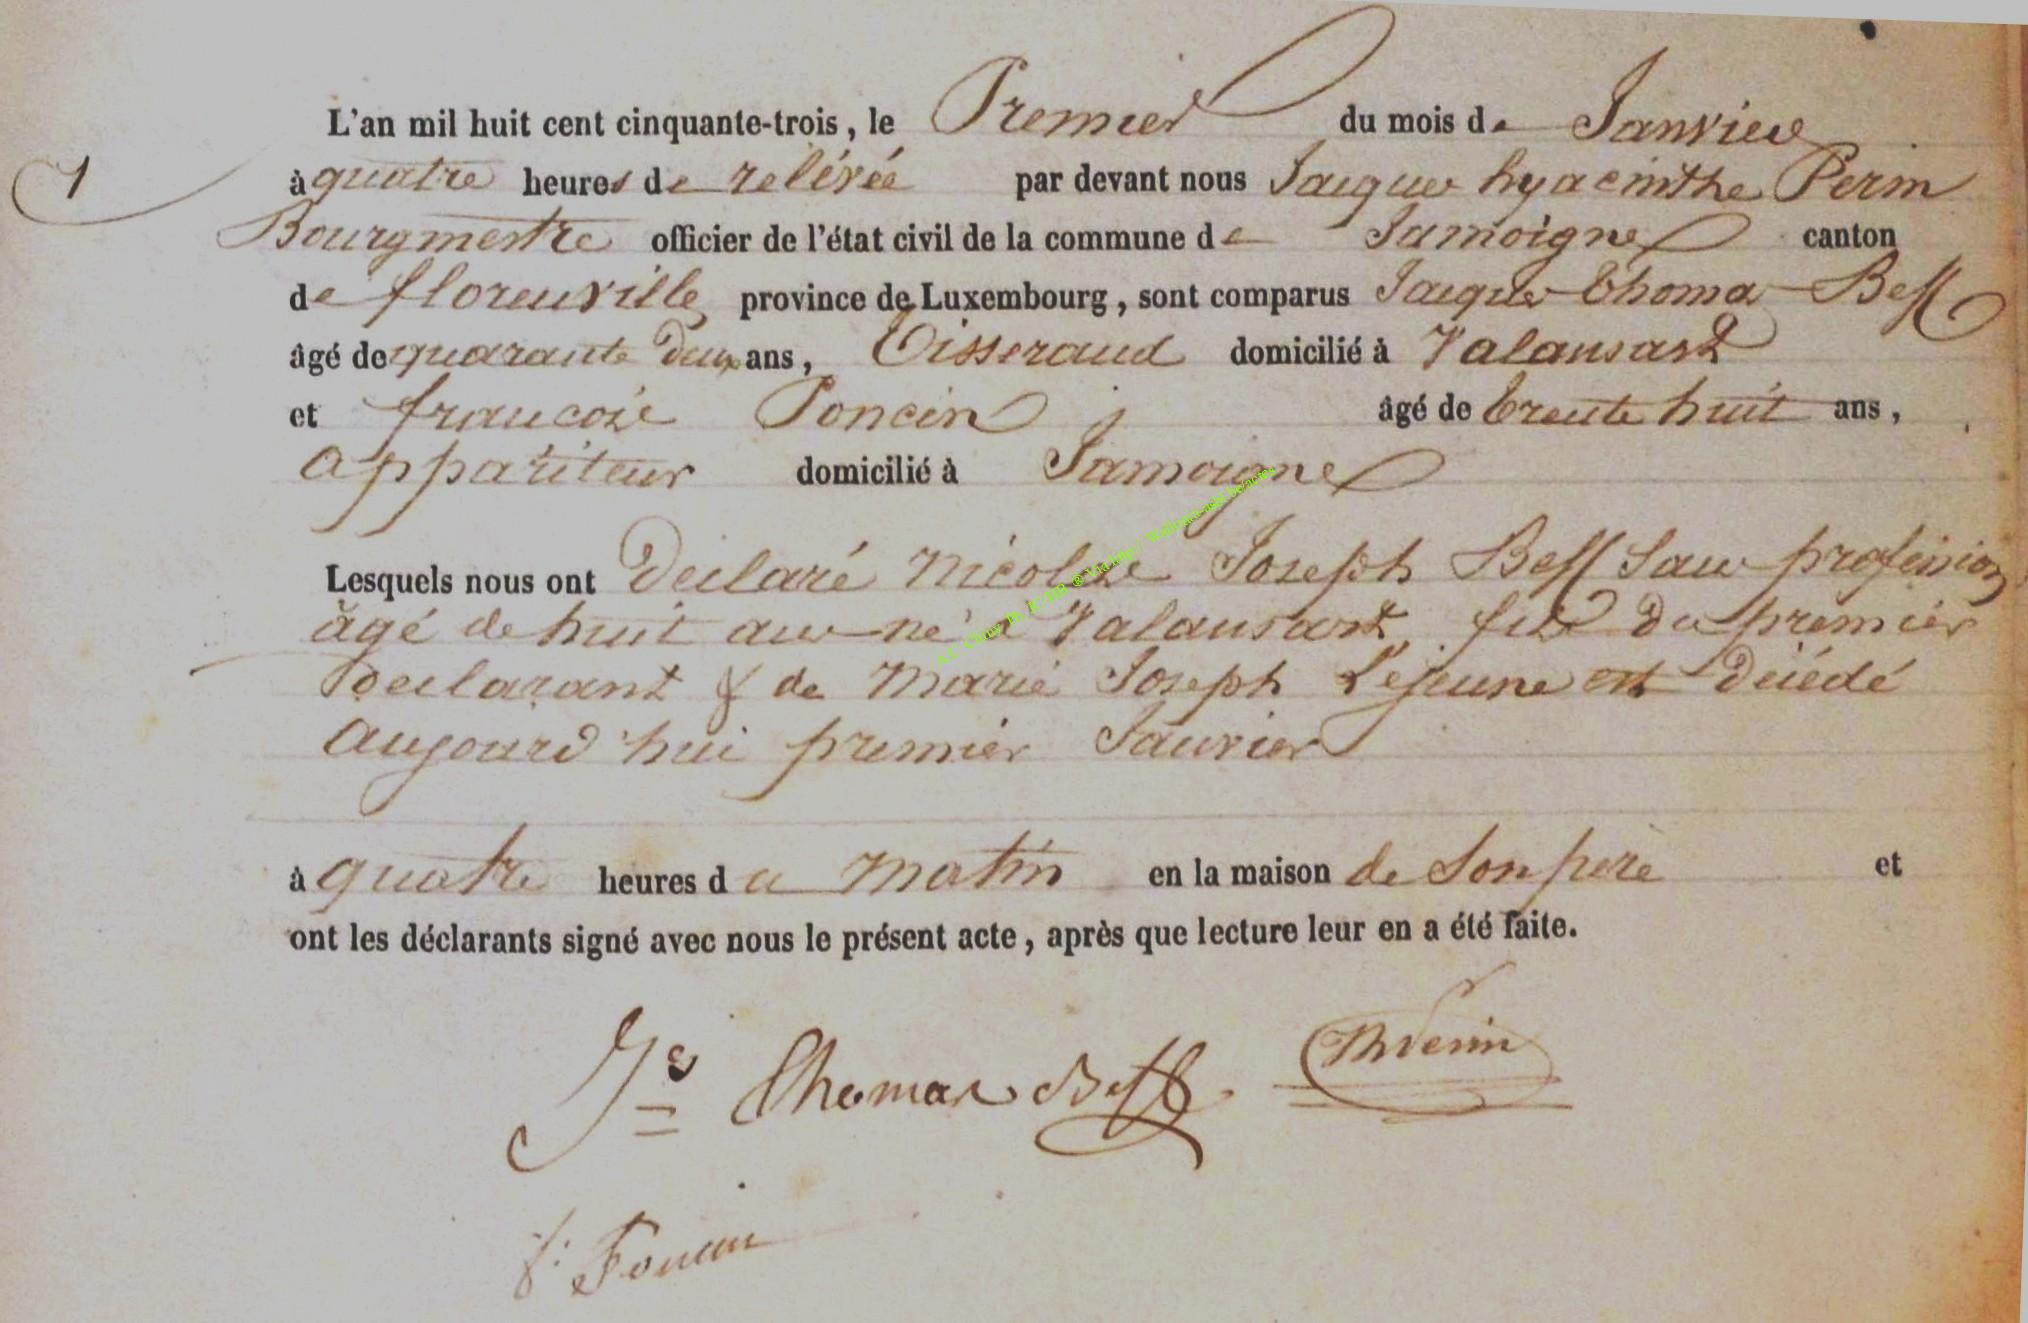 L'an mil huit cent cinquante-trois, le Premier du mois de Janvier
1 à quatre heures de relévée par devant nous Jacques hyacinthe Perin
Bourgmestre officier de l'état civil de la commune de Jamoigne canton
de florenville province de Luxembourg, sont comparus Jacques Thomas Beff
âgé de quarante deux ans, Tisserand domicilié à Valansart
et francois Poncin âgé de trente huit ans,
appariteur domicilié à Jamoigne
Lesquels nous ont declaré Nicolas Joseph Beff sans profession
âgé de huit ans né à Valansart, fils du premier
declarant & de Marie Joseph Lejeune est décédé
aujourd'hui premier Janvier
à quatre heures du matin en la maison de son père et
ont les déclarants signé avec nous le présent acte, après que lecture leur en a été faite.
Jes Thomas Beff